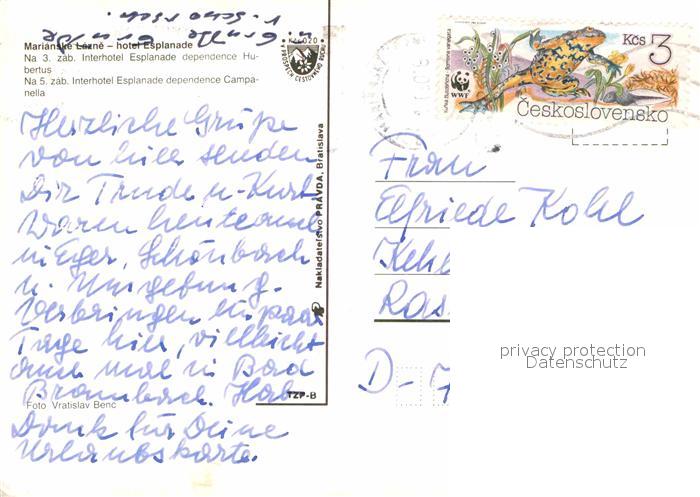 Mariánské Lázně – hotel Esplanade
Na 3. záb. Interhotel Esplanade dependence Hu-
bertus
Na 5. záb. Interhotel Esplanade dependence Campa-
nella
Herzliche Grüße
von hier senden
Dir Trude u. Kurt
Waren heute auch
in Eger, Schönbach
u. Umgebung.
Verbringen ein paar
Tage hier, vielleicht
auch mal in Bad
Brambach. Hab
Dank für Deine
Urlaubskarte.
Foto Vratislav Benc
TZP-B
Nakladatelství PRAVDA, Bratislava
Kčs 3
WWF
Československo
Frau
Elfriede Kohl
Keh
Ras
D-7
privacy protection
Datenschutz